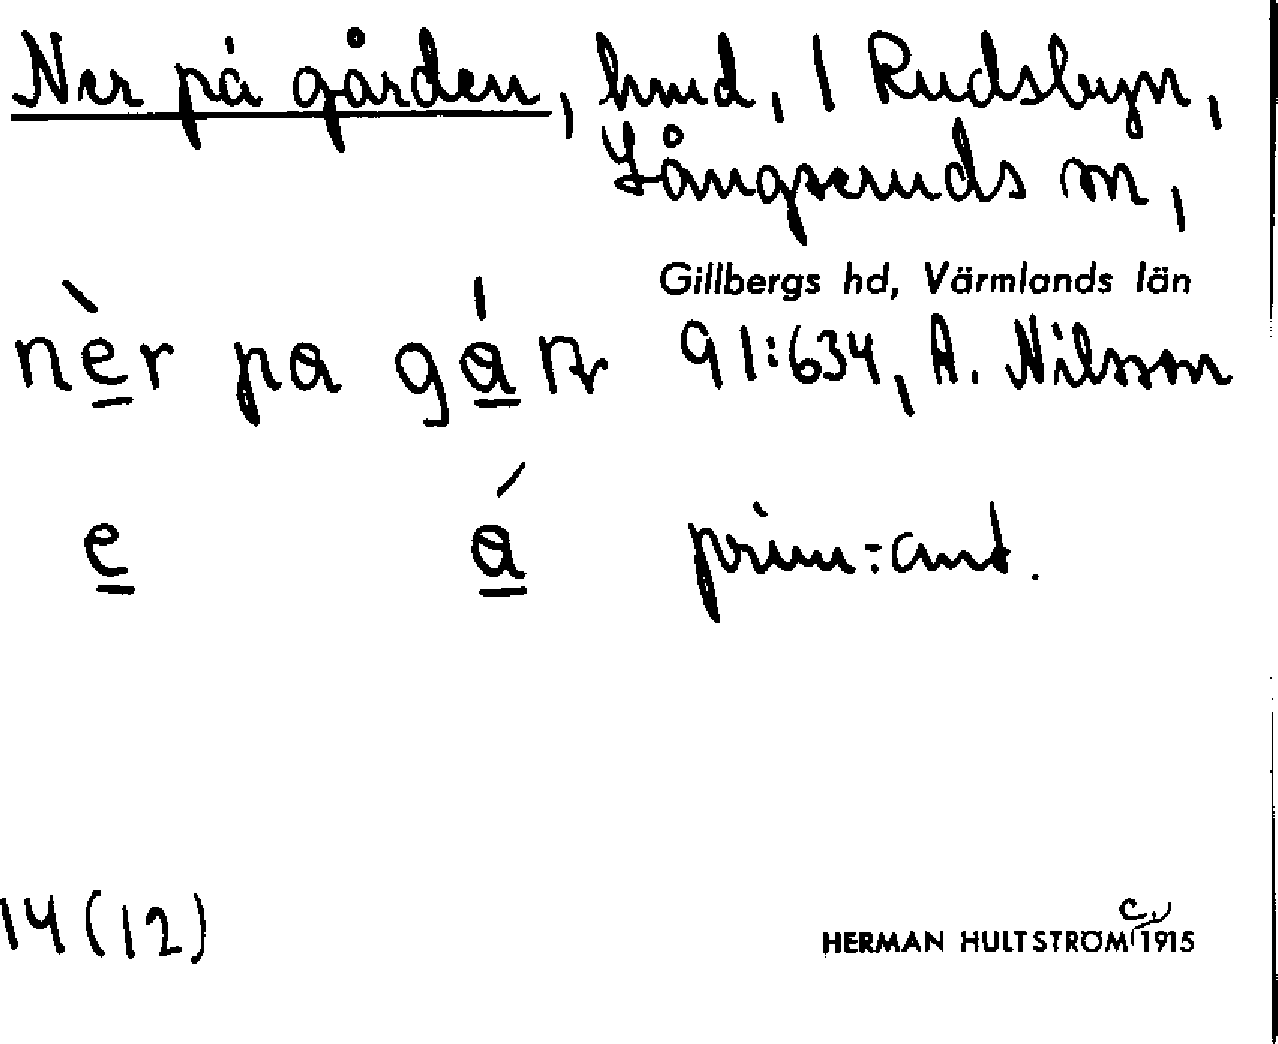 Ner på gården, hmd, 1 Rudsbyn,
Långseruds sn,
Gillbergs hd, Värmlands län
nèr pa gán 91:634, A. Nilsson
e á prim:ant.
14(12)
HERMAN HULTSTRÖM c. 1915